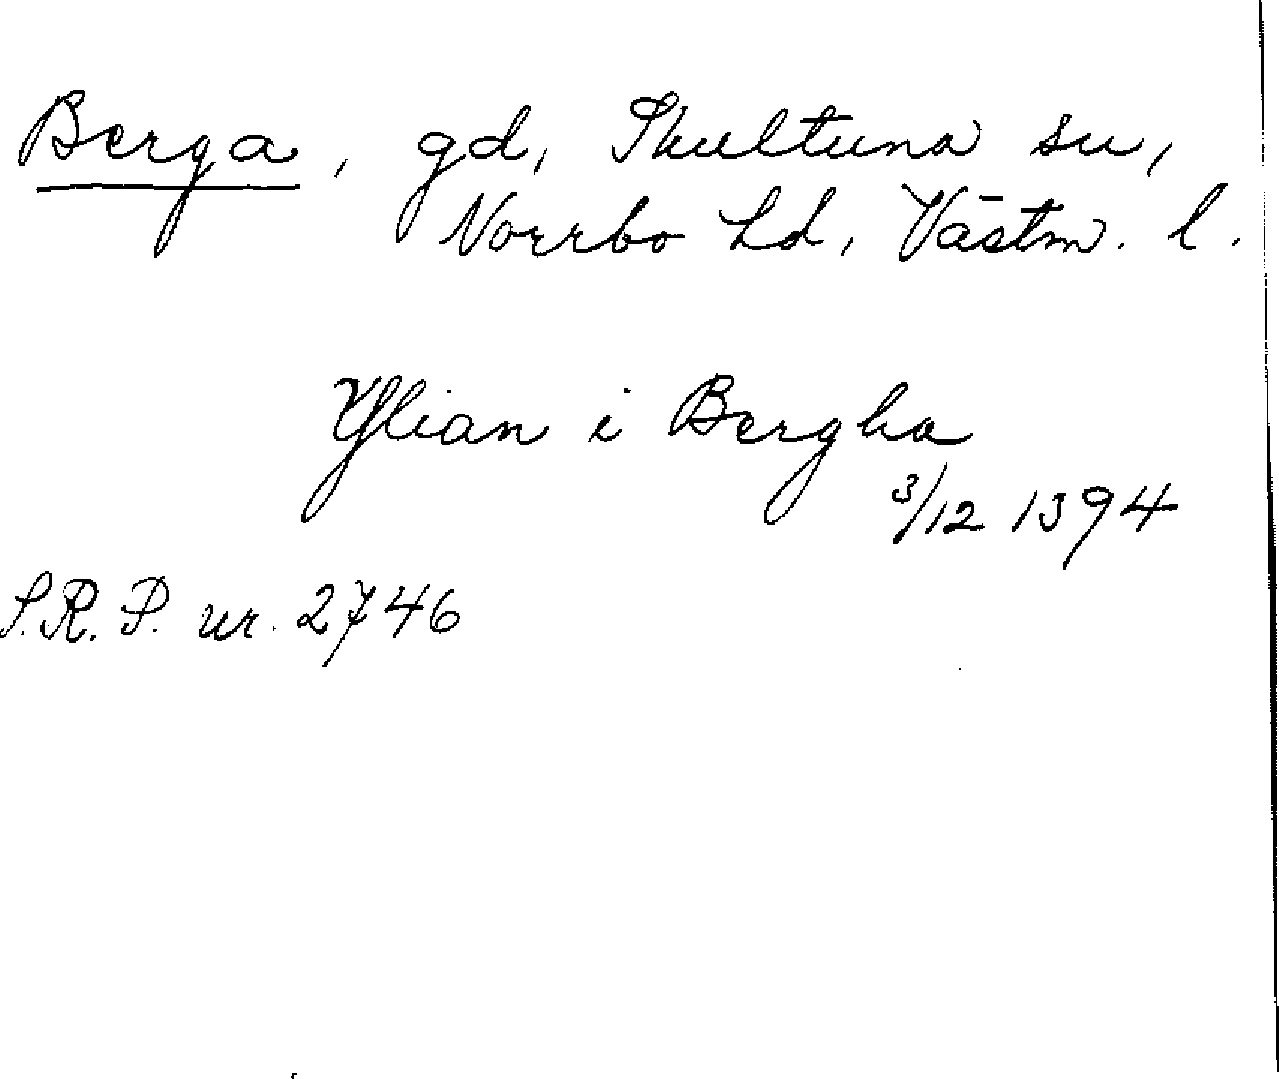 Berga, gd, Skultuna sn,
Norrbo hd, Västm. l.
Yllian i Bergha
3/12 1394
S.R.P. nr. 2746